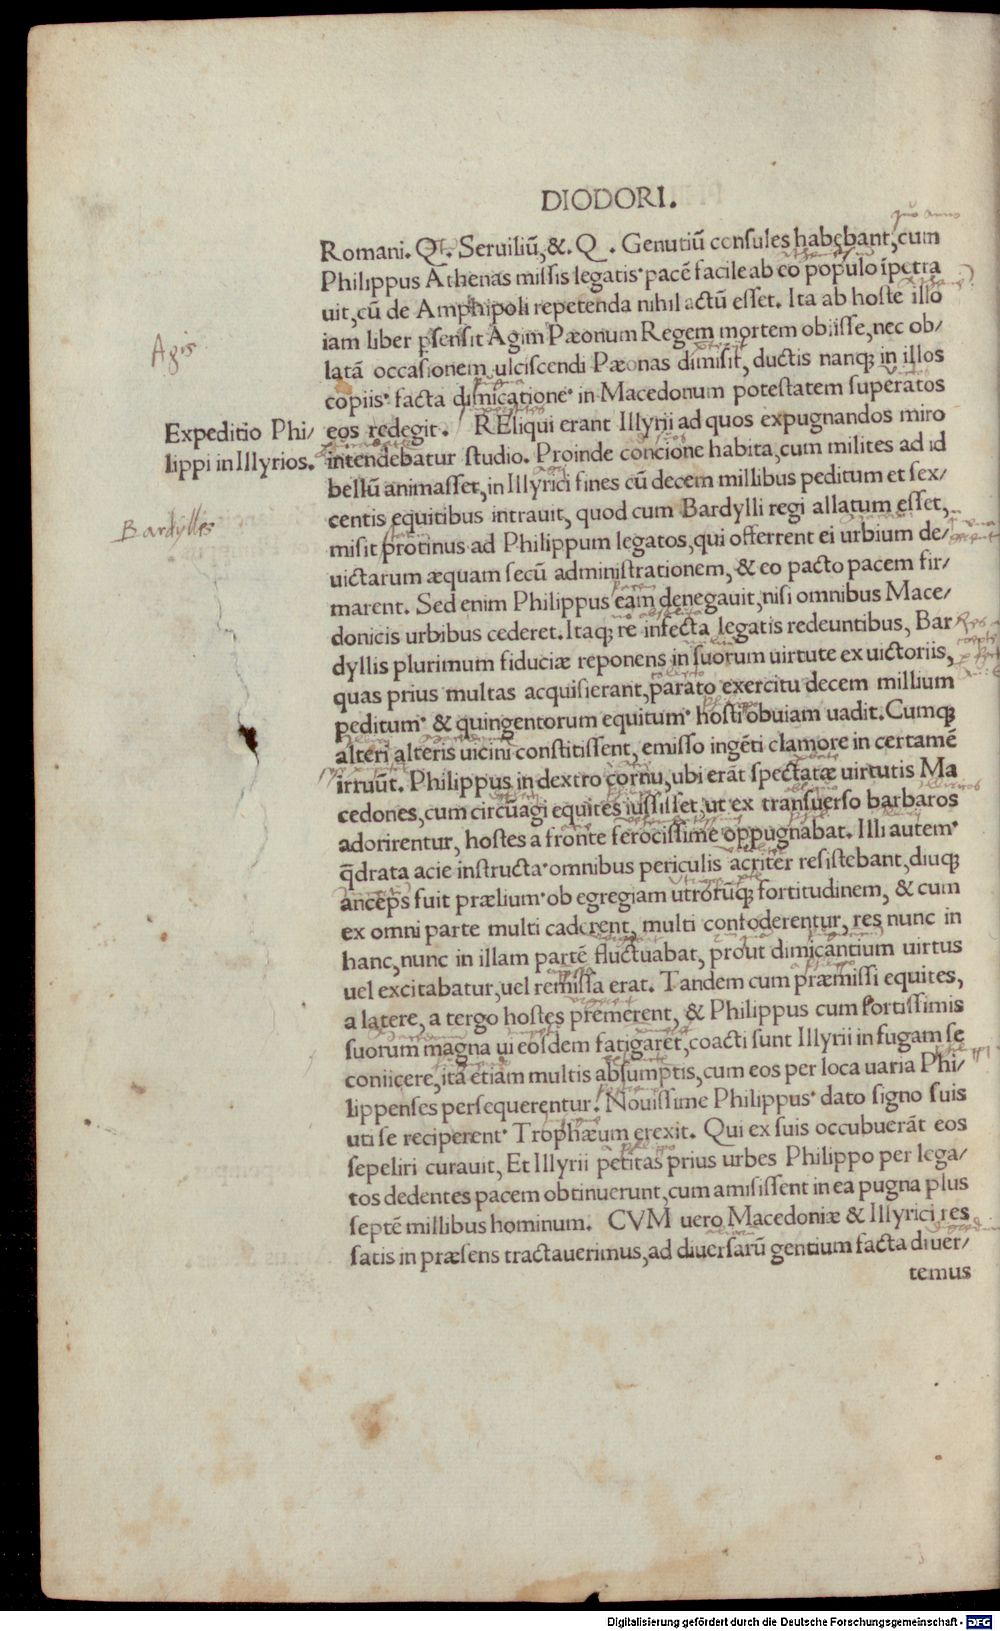 DIODORI.
Romani. Qt. Seruiliū, &. Q . Genutiū consules habębant, cum
Philippus Athenas missis legatis· pacē facile ab eo populo īpetra
uit, cū de Amphipoli repetenda nihil actū esset. Ita ab hoste illo
iam liber psensit Agim Pæonum Regem mortem obiisse, nec ob/
latā occasionem ulciscendi Pæonas dimisit, ductis nanqꝫ in illos
copiis· facta dimicatione· in Macedonum potestatem superatos
eos redegit. RELiqui erant Illyrii ad quos expugnandos miro
intendebatur studio. Proinde concione habita, cum milites ad id
bellū animasset, in Illyrici fines cū decem millibus peditum et sex/
centis equitibus intrauit, quod cum Bardylli regi allatum esset,
misit protinus ad Philippum legatos, qui offerrent ei urbium de/
uictarum æquam secū administrationem, & eo pacto pacem fir/
marent. Sed enim Philippus eam denegauit, nisi omnibus Mace/
donicis urbibus cederet. Itaqꝫ re infecta legatis redeuntibus, Bar
dyllis plurimum fiduciæ reponens in suorum uirtute ex uictoriis,
quas prius multas acquisierant, parato exercitu decem millium
peditum· & quingentorum equitum· hosti obuiam uadit. Cumqꝫ
alteri alteris uicini constitissent, emisso ingēti clamore in certamē
irruūt. Philippus in dextro cornu, ubi erāt spectatæ uirtutis Ma
cedones, cum circūagi equites iussisset, ut ex transuerso barbaros
adorirentur, hostes a fronte ferocissime oppugnabat. Illi autem·
q̄drata acie instructa· omnibus periculis acriter resistebant, diuqꝫ
anceps fuit prælium· ob egregiam utrorūqꝫ fortitudinem, & cum
ex omni parte multi caderent, multi confoderentur, res nunc in
hanc, nunc in illam partē fluctuabat, prout dimicantium uirtus
uel excitabatur, uel remissa erat. Tandem cum præmissi equites,
a latere, a tergo hostes premerent, & Philippus cum fortissimis
suorum magna ui eosdem fatigaret, coacti sunt Illyrii in fugam se
coniicere, ita etiam multis absumptis, cum eos per loca uaria Phi/
lippenses persequerentur. Nouissime Philippus· dato signo suis
uti se reciperent· Trophæum erexit. Qui ex suis occubuerāt eos
sepeliri curauit, Et Illyrii petitas prius urbes Philippo per lega/
tos dedentes pacem obtinuerunt, cum amisissent in ea pugna plus
septē millibus hominum. CVM uero Macedoniæ & Illyrici res
satis in præsens tractauerimus, ad diuersarū gentium facta diuer/
temus
Agis
Expeditio Phi/
lippi in Illyrios.
Bardylles
Digitalisierung gefördert durch die Deutsche Forschungsgemeinschaft - DFG